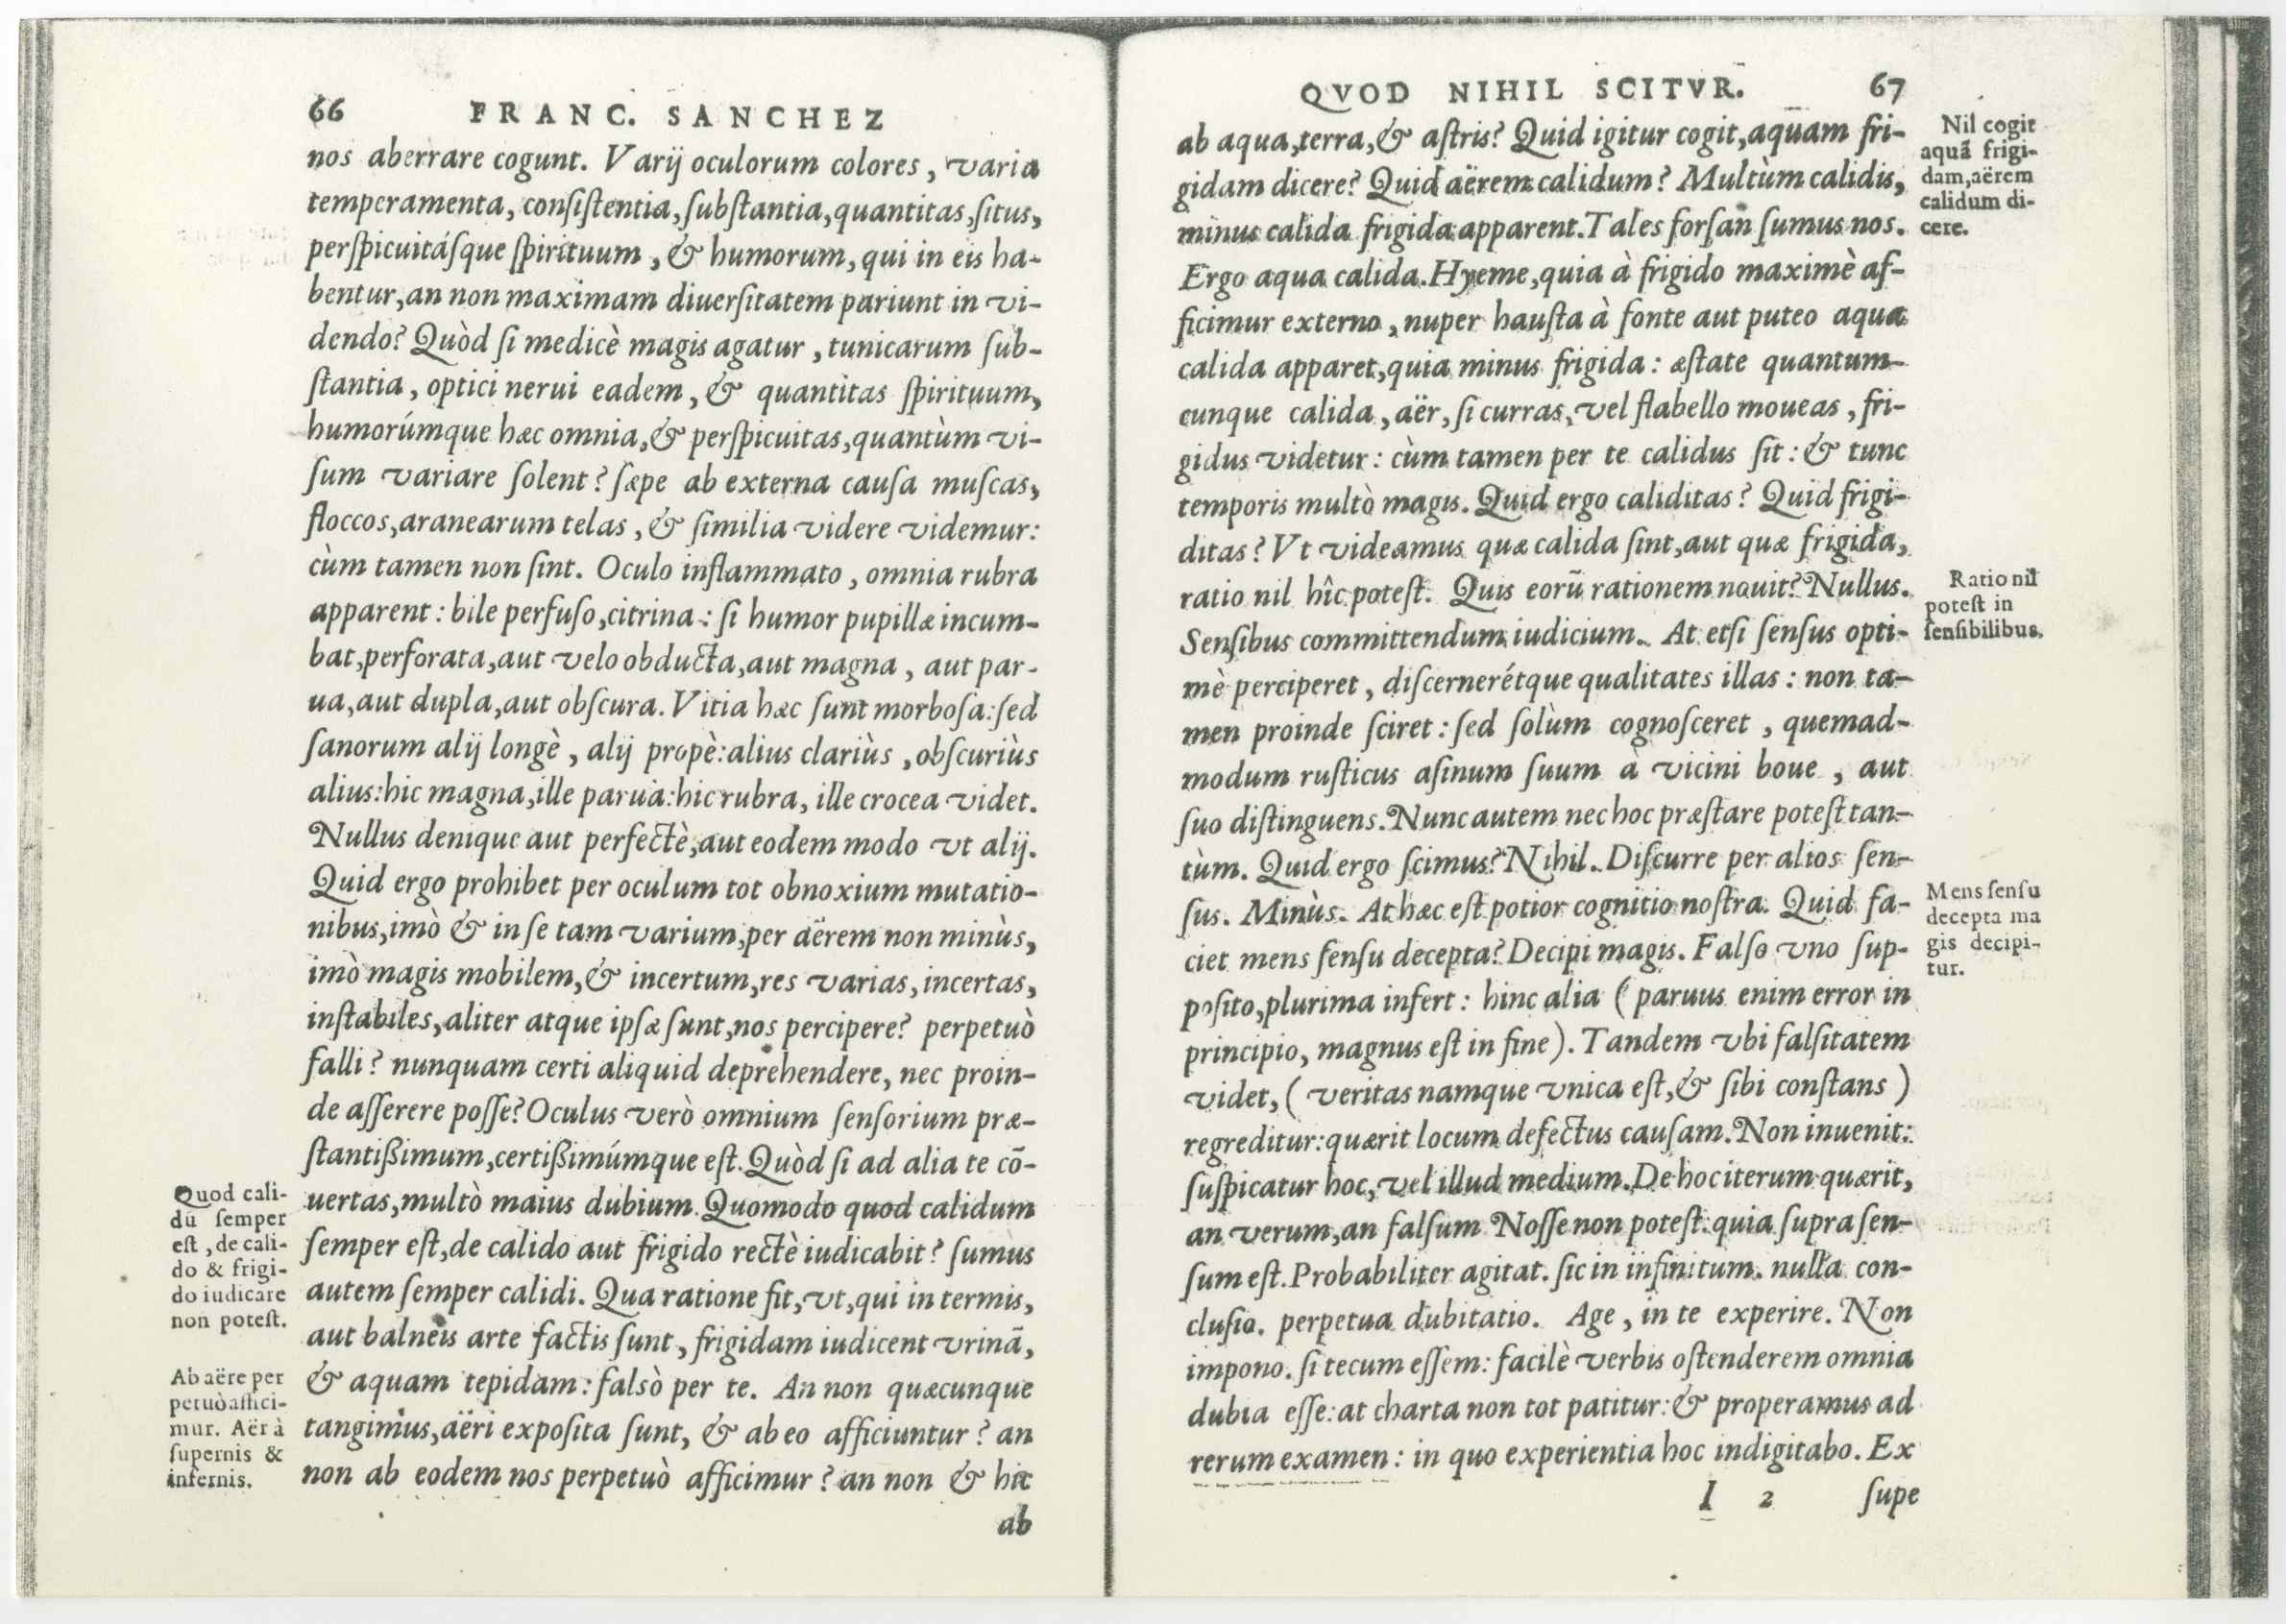 66 FRANC. SANCHEZ
nos aberrare cogunt. Varij oculorum colores, varia
temperamenta, consistentia, substantia, quantitas, situs,
perspicuitásque spirituum, & humorum, qui in eis ha-
bentur, an non maximam diuersitatem pariunt in vi-
dendo? Quòd si medicè magis agatur, tunicarum sub-
stantia, optici nerui eadem, & quantitas spirituum,
humorúmque hæc omnia, & perspicuitas, quantùm vi-
sum variare solent? sæpe ab externa causa muscas,
floccos, aranearum telas, & similia videre videmur:
cùm tamen non sint. Oculo inflammato, omnia rubra
apparent: bile perfuso, citrina: si humor pupillæ incum-
bat, perforata, aut velo obducta, aut magna, aut par-
ua, aut dupla, aut obscura. Vitia hæc sunt morbosa: sed
sanorum alij longè, alij propè: alius clariùs, obscuriùs
alius: hic magna, ille parua: hic rubra, ille crocea videt.
Nullus denique aut perfectè, aut eodem modo vt alij.
Quid ergo prohibet per oculum tot obnoxium mutatio-
nibus, imò & in se tam varium, per aërem non minùs,
imò magis mobilem, & incertum, res varias, incertas,
instabiles, aliter atque ipsæ sunt, nos percipere? perpetuò
falli? nunquam certi aliquid deprehendere, nec proin-
de asserere posse? Oculus verò omnium sensorium præ-
stantißimum, certißimúmque est. Quòd si ad alia te cō-
uertas, multò maius dubium. Quomodo quod calidum
semper est, de calido aut frigido rectè iudicabit? sumus
autem semper calidi. Qua ratione fit, vt, qui in termis,
aut balneis arte factis sunt, frigidam iudicent vrinā,
& aquam tepidam: falsò per te. An non quæcunque
tangimus, aëri exposita sunt, & ab eo afficiuntur? an
non ab eodem nos perpetuò afficimur? an non & hic
ab
Quod cali-
dū semper
est, de cali-
do & frigi-
do iudicare
non potest.
Ab aëre per
petuò affici-
mur. Aër à
supernis &
infernis.
QVOD NIHIL SCITVR. 67
ab aqua, terra, & astris? Quid igitur cogit, aquam fri-
gidam dicere? Quid aërem calidum? Multùm calidis,
minus calida frigida apparent. Tales forsan sumus nos.
Ergo aqua calida. Hyeme, quia à frigido maximè af-
ficimur externo, nuper hausta à fonte aut puteo aqua
calida apparet, quia minus frigida: æstate quantum-
cunque calida, aër, si curras, vel flabello moueas, fri-
gidus videtur: cùm tamen per te calidus sit: & tunc
temporis multò magis. Quid ergo caliditas? Quid frigi-
ditas? Vt videamus quæ calida sint, aut quæ frigida,
ratio nil hîc potest. Quis eorū rationem nouit? Nullus.
Sensibus committendum iudicium. At etsi sensus opti-
mè perciperet, discernerétque qualitates illas: non ta-
men proinde sciret: sed solùm cognosceret, quemad-
modum rusticus asinum suum à vicini boue, aut
suo distinguens. Nunc autem nec hoc præstare potest tan-
tùm. Quid ergo scimus? Nihil. Discurre per alios sen-
sus. Minùs. At hæc est potior cognitio nostra. Quid fa-
ciet mens sensu decepta? Decipi magis. Falso vno sup-
posito, plurima infert: hinc alia (paruus enim error in
principio, magnus est in fine). Tandem vbi falsitatem
videt, (veritas namque vnica est, & sibi constans)
regreditur: quærit locum defectus causam. Non inuenit:
suspicatur hoc, vel illud medium. De hoc iterum quærit,
an verum, an falsum. Nosse non potest: quia supra sen-
sum est. Probabiliter agitat. sic in iinfinitum. nulla con-
clusio. perpetua dubitatio. Age, in te experire. Non
impono. si tecum essem: facilè verbis ostenderem omnia
dubia esse: at charta non tot patitur: & properamus ad
rerum examen: in quo experientia hoc indigitabo. Ex
I 2 supe
Nil cogit
aquā frigi-
dam, aërem
calidum di-
cere.
Ratio nil
potest in
sensibilibus.
Mens sensu
decepta ma
gis decipi-
tur.